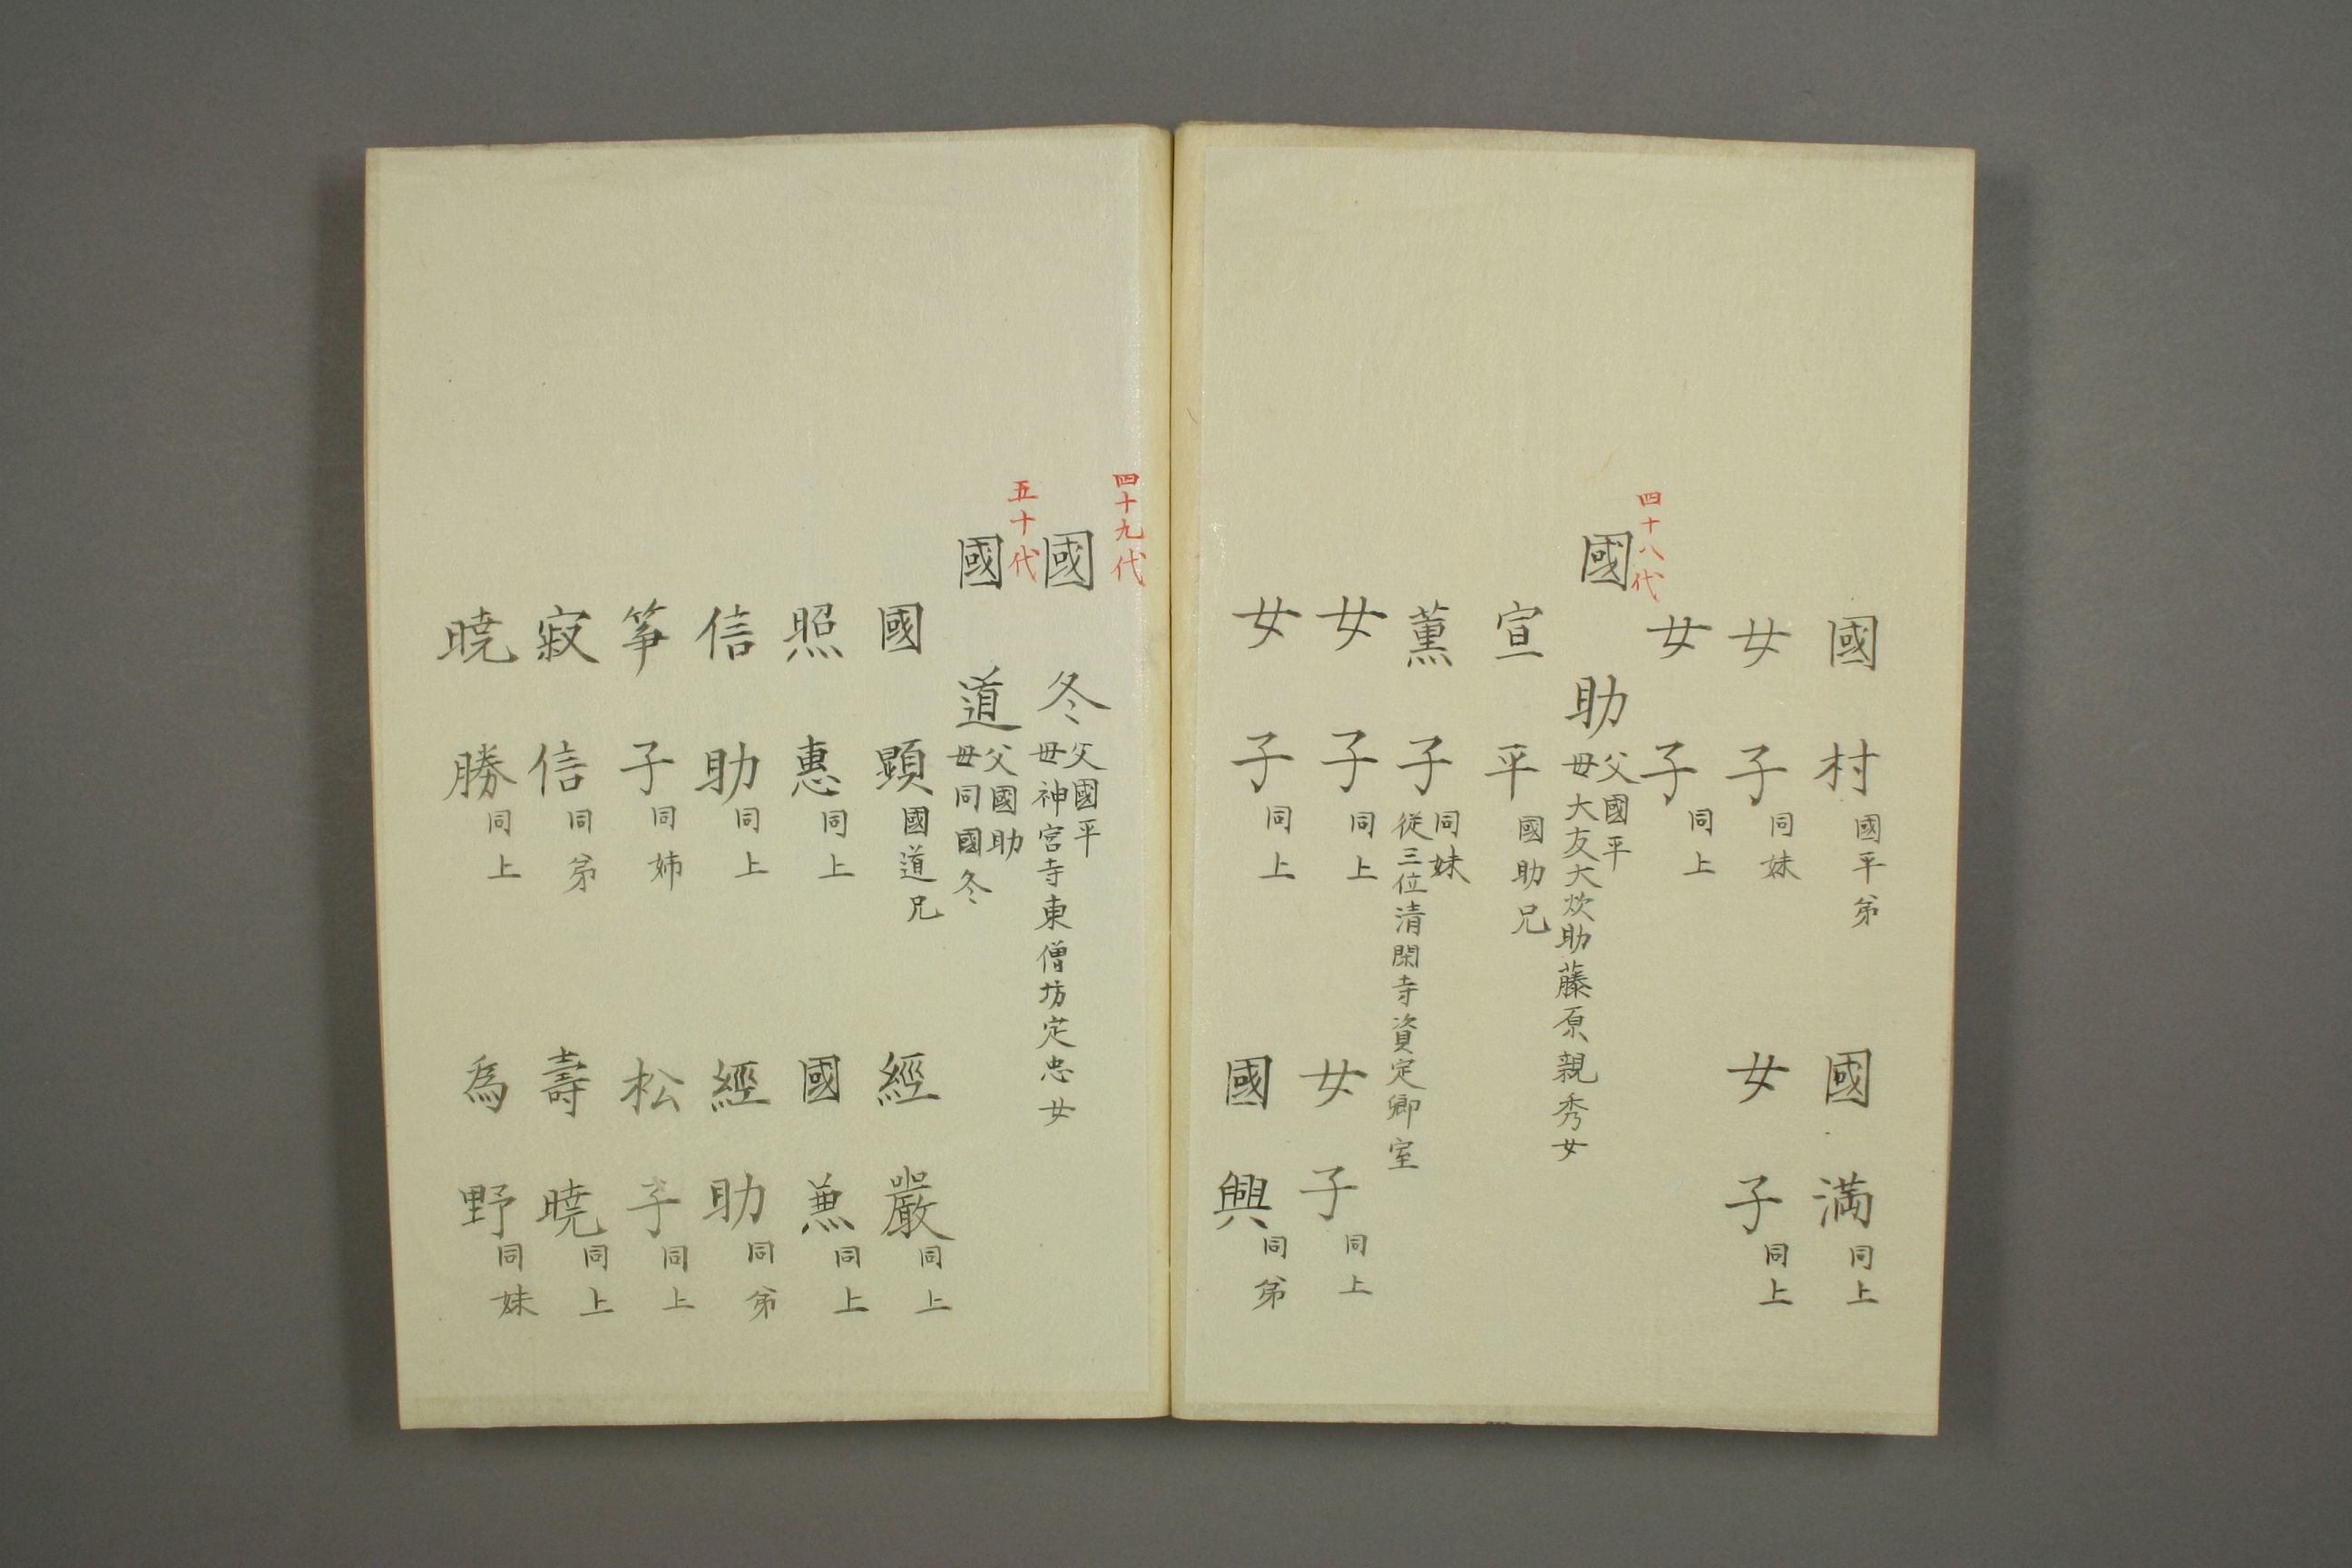 國村 國平弟
國満 同上
女子 同妹
女子 同上
女子 同上
四十八代
國助 父國平
母大友大炊助藤原親秀女
宣平 國助兄
薫子 同妹
従三位清閑寺資定卿室
女子 同上
女子 同上
女子 同上
國興 同弟
四十九代
國冬 父國平
母神宮寺東僧坊定忠女
五十代
國道 父國助
母同國冬
國顕 國道兄
經嚴 同上
照惠 同上
國兼 同上
信助 同上
經助 同弟
筝子 同姉
松子 同上
寂信 同弟
壽暁 同上
暁勝 同上
為野 同妹